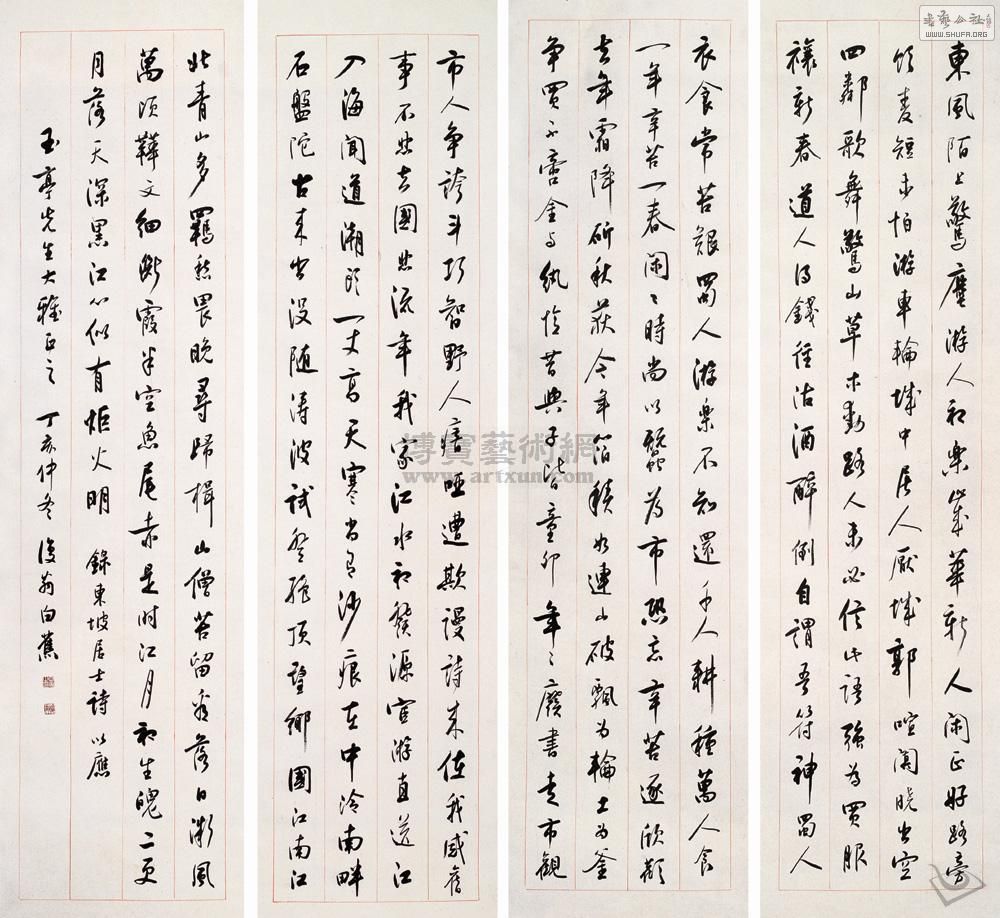 東風陌上驚塵游人初樂歲華新人閑正好路旁
飲麥短未怕游車輪城中居人厭城郭喧闐曉出空
四鄰歌舞驚山草木動路人未必信此語強為買服
禳新春道人得錢徑沽酒醉倒自謂吾符神蜀人
衣食常苦艱蜀人游樂不知還千人耕種萬人食
一年辛苦一春閑々時尚以蠶為市恐忘辛苦逐欣顏
去年霜降斫秋荻今年箔積如連山破瓢為輪土為釜
争買不啻金与紈憶昔與子皆童丱年々廢書走市觀
市人争誇斗巧智野人瘖啞遭欺謾詩来使我感舊
事不悲去國悲流年我家江水初發源宦游直送江
入海聞道潮頭一丈高天寒尚有沙痕在中泠南畔
石盤陀古来出没随濤波試登絕頂望鄉國江南江
北青山多羈愁畏晚尋歸楫山僧苦留看落日微風
萬頃鞾文細斷霞半空魚尾赤是時江月初生魄二更
月落天深黑江心似有炬火明 錄東坡居士詩以應
玉亭先生大雅正之 丁亥仲冬 復翁白蕉
書藝公社
WWW.SHUFA.ORG
博寶藝術網
www.artxun.com